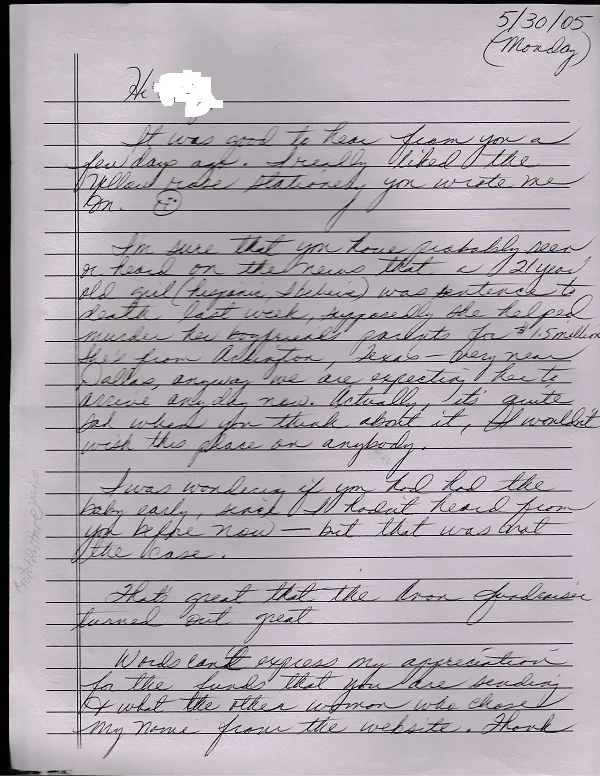 5/30/05
(Monday)
Hi
It was good to hear from you a
few days ago. I really liked the
Yellow rose stationery you wrote me
on.
I'm sure that you have probably seen
or heard on the news that a 21 year
old girl (hispanic, I believe) was sentenced to
death last week, supposedly she helped
murder her boyfriends parents for $1.5 million
She's from Arlington, Texas - very near
Dallas, anyway we are expecting her to
arrive any day now. Actually, it's quite
sad when you think about it, I wouldn't
wish this place on anybody.
I was wondering if you had had the
baby early, since I hadn't heard from
you before now - but that was not
the case.
That's great that the Avon fundraiser
turned out great
Words can't express my appreciation
for the funds that you are sending
& what the other woman who chose
my name from the website. Thank